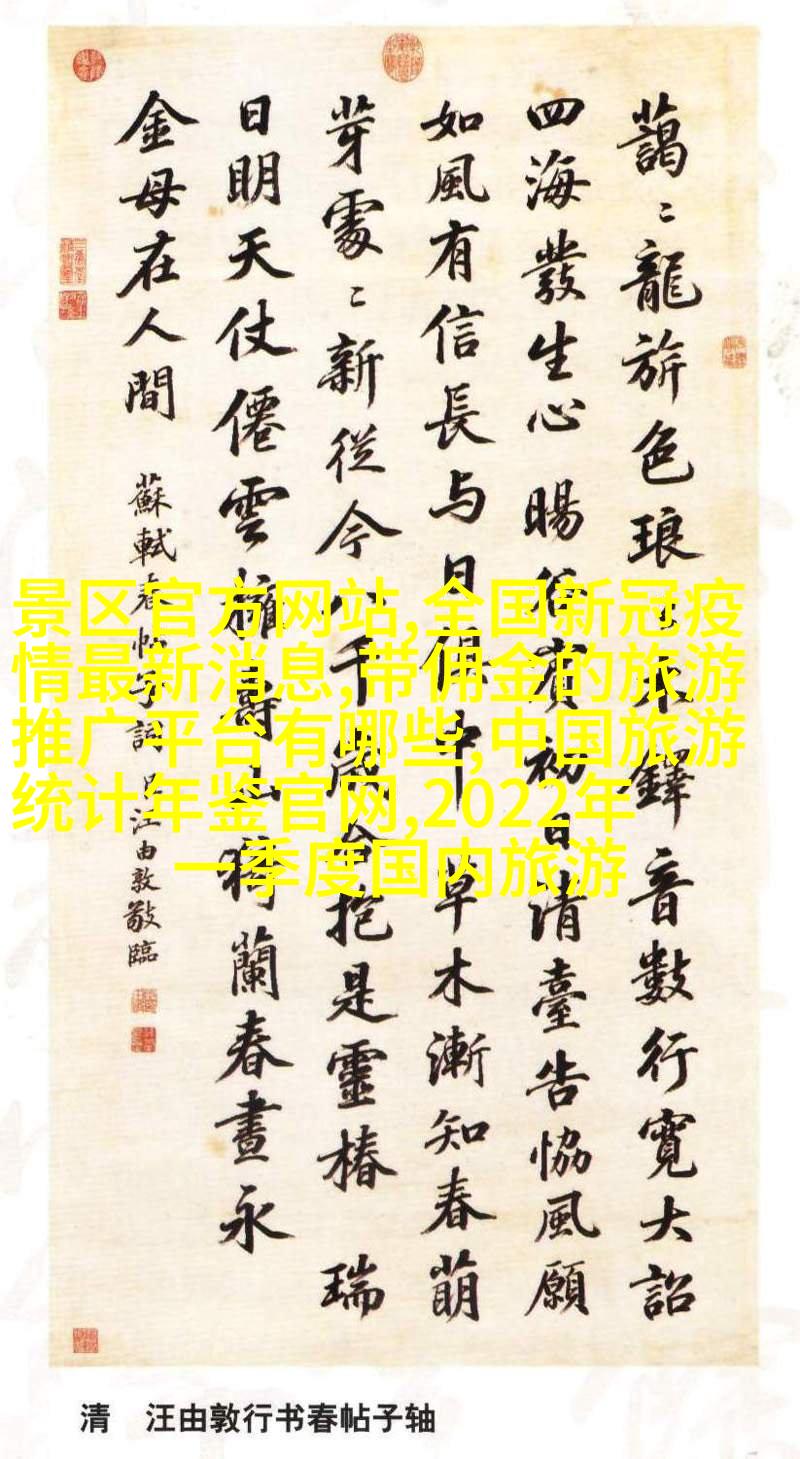 藹〻龍旂色琅〻木鐸音數行寬大詔
四海發生心 暘谷賓初日清臺告協風願
如風有信長与日俱中 草木漸知春萌
芽處〻新從今八千歲合抱是靈椿 瑞
日明天仗僊雲擁壽山猗蘭春晝永
金母在人間 蘇軾春帖子詞 臣汪由敦敬臨
景区官方网站,全国新冠疫
情最新消息,带佣金的旅游
推广平台有哪些,中国旅游
统计年鉴官网,2022年
一季度国内旅游
清 汪由敦行书春帖子轴